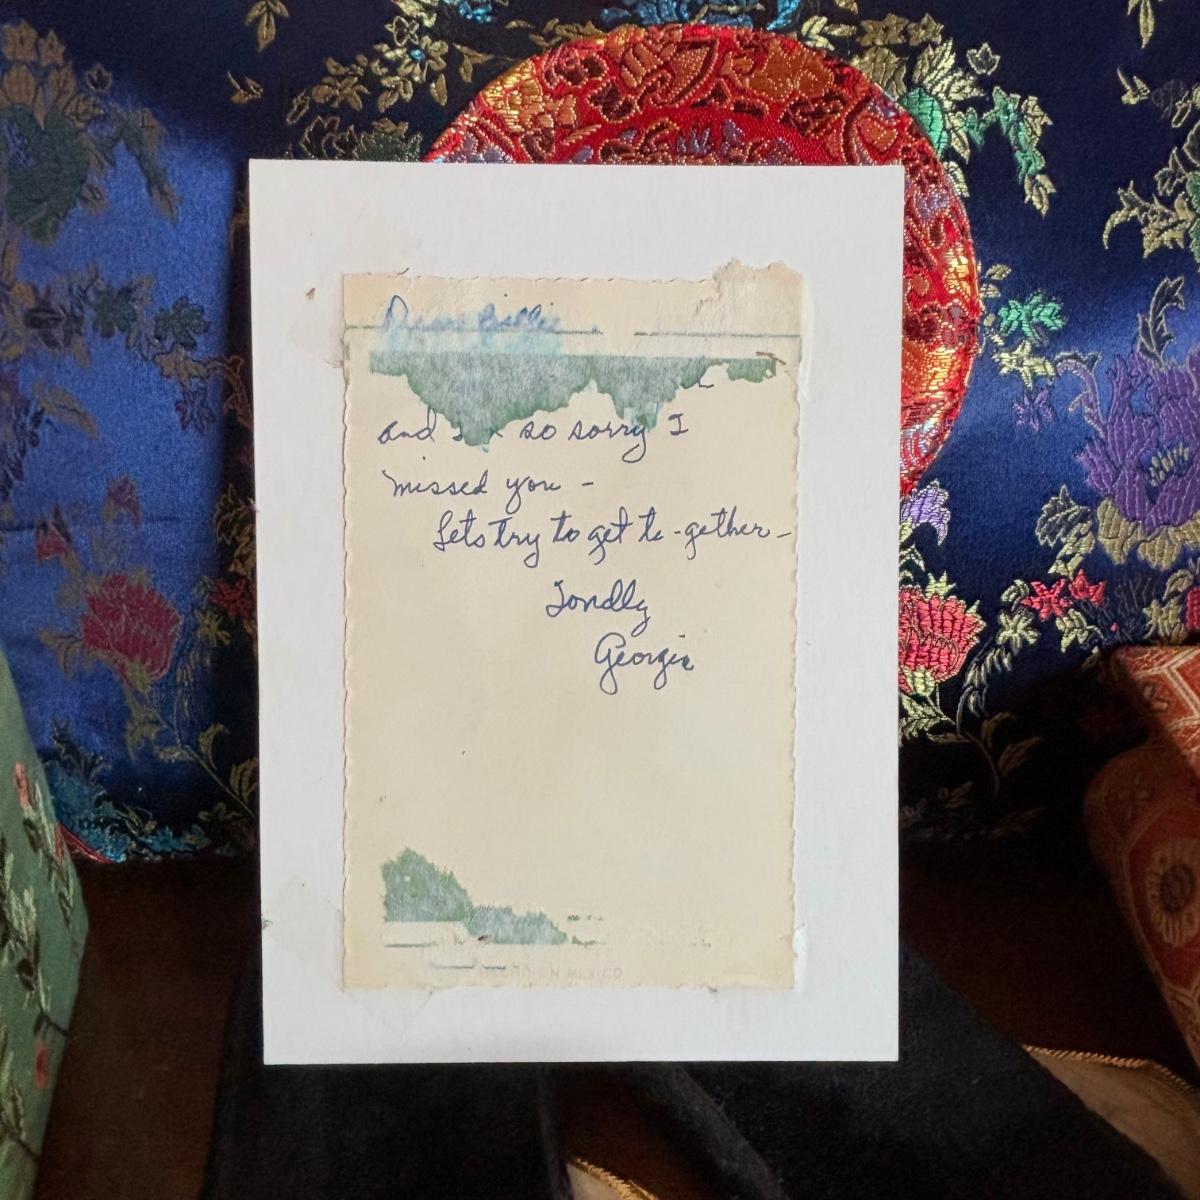 Dear Billie
and so sorry I
missed you -
Lets try to get to-gether-
Fondly
Georgia
HECHO EN MEXICO